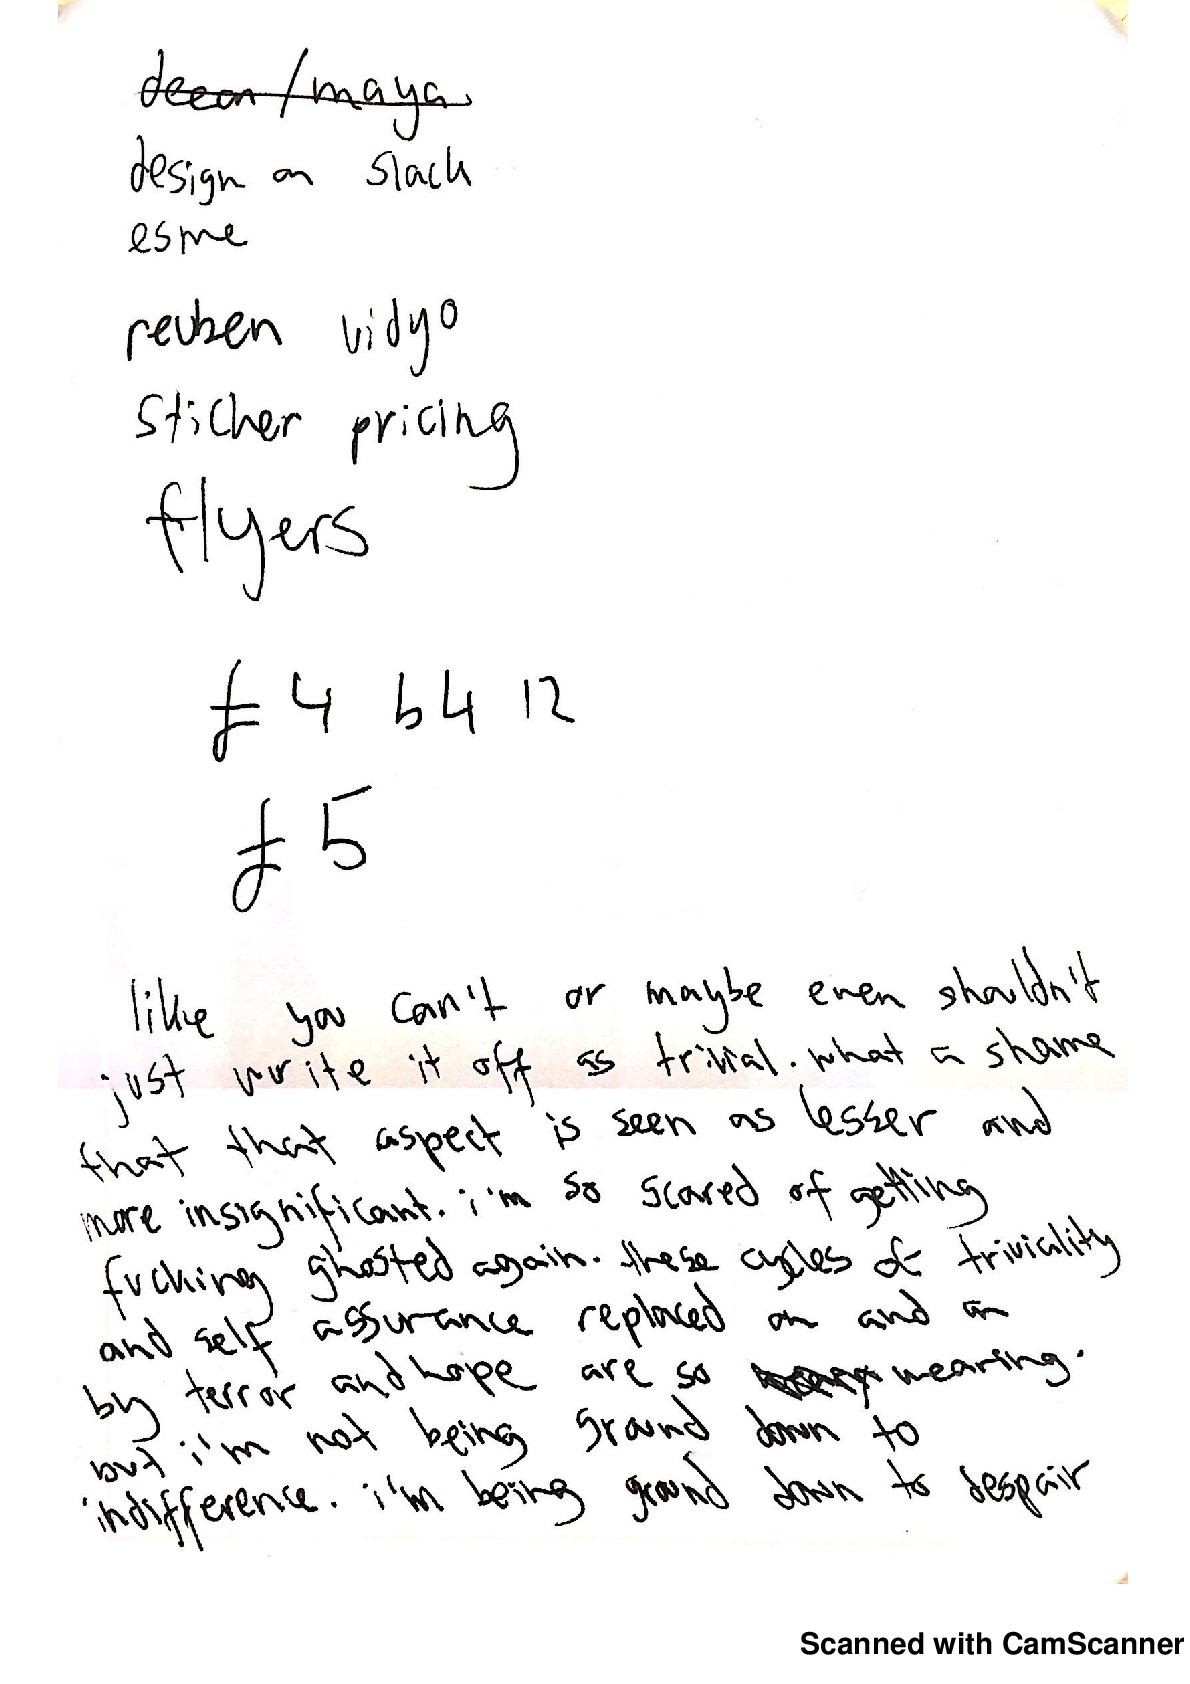 deean / maya
design on slack
esme
reuben vidyo
sticker pricing
flyers
£4 b4 12
£5
like you can't or maybe even shouldn't
just write it off as trivial. what a shame
that that aspect is seen as lesser and
more insignificant. i'm so scared of getting
fucking ghosted again. these cycles of triviality
and self assurance replaced on and on
by terror and hope are so wearing.
but i'm not being ground down to
indifference. i'm being ground down to despair
Scanned with CamScanner